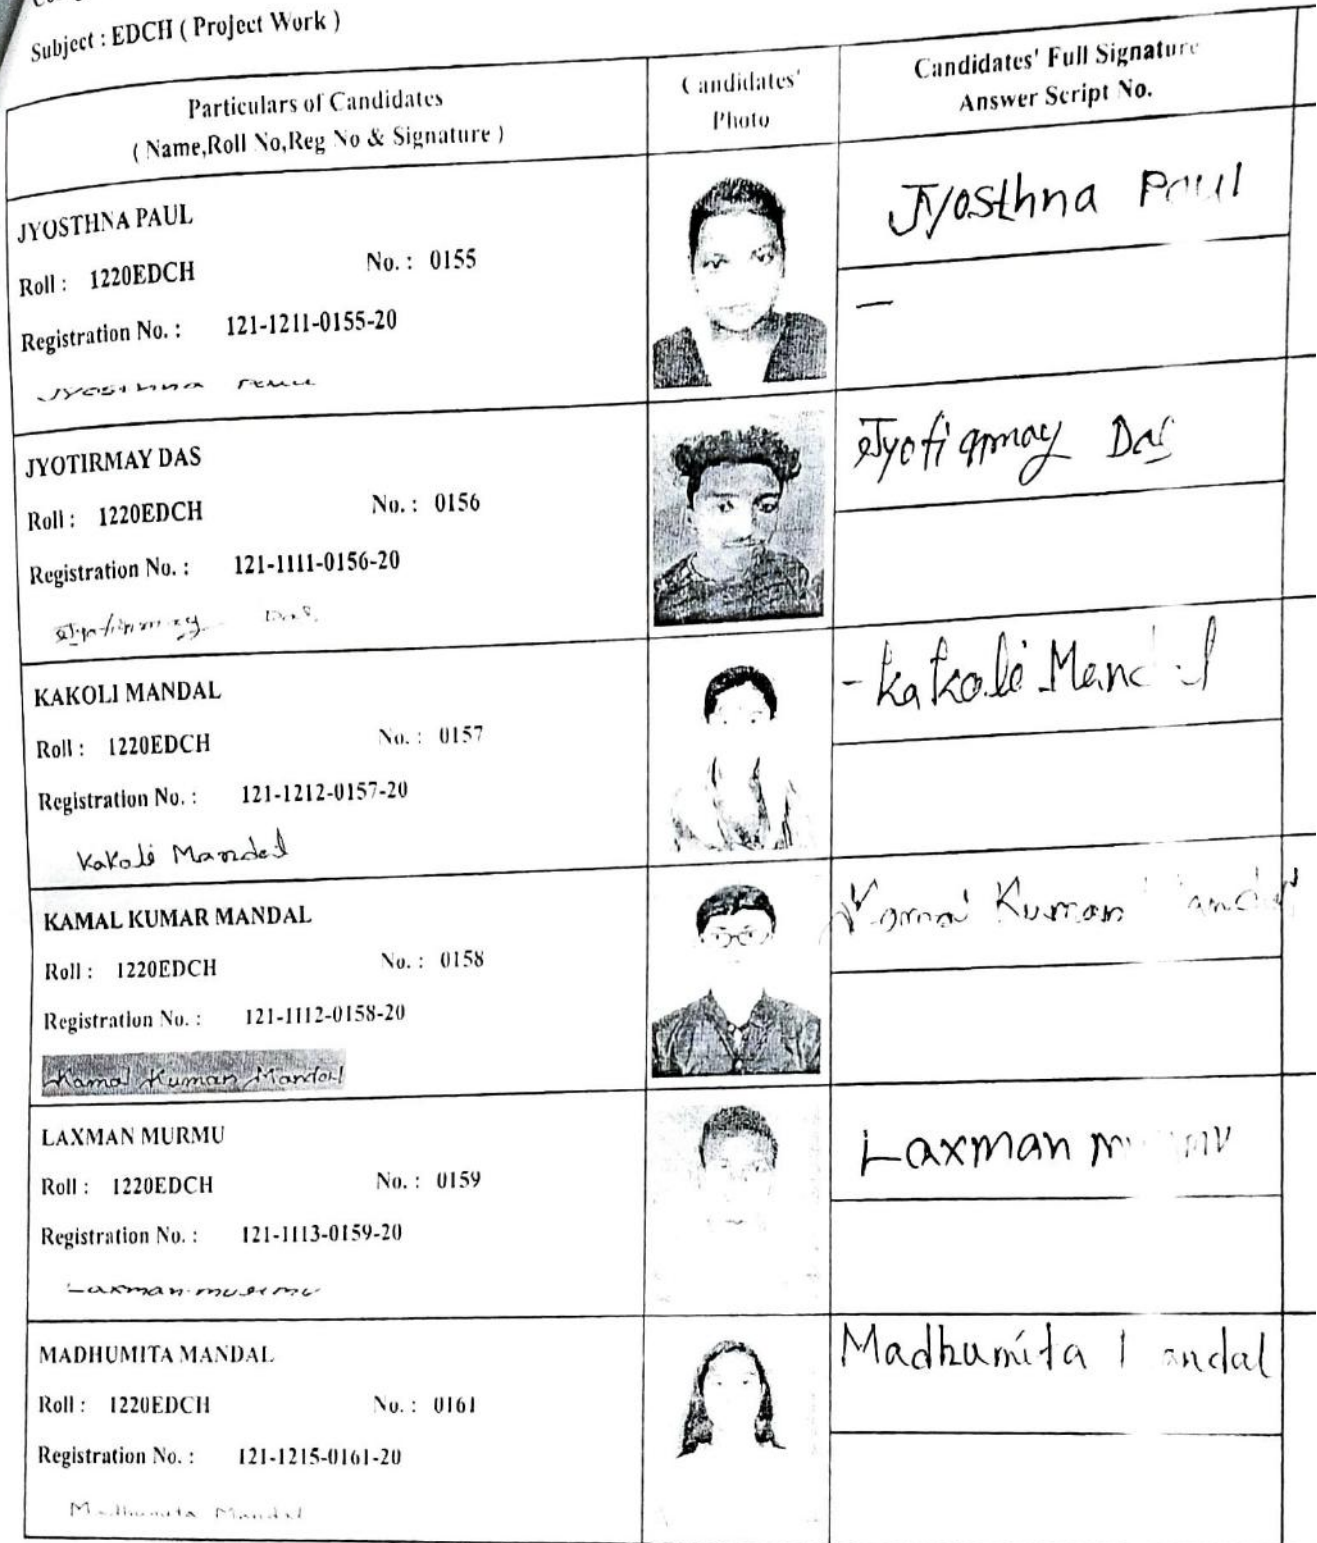 Subject : EDCH ( Project Work )
Particulars of Candidates
( Name,Roll No,Reg No & Signature )
Candidates'
Photo
Candidates' Full Signature
Answer Script No.
JYOSTHNA PAUL
Roll : 1220EDCH No. : 0155
Registration No. : 121-1211-0155-20
Jyosthna Paul
Jyosthna Paul
—
JYOTIRMAY DAS
Roll : 1220EDCH No. : 0156
Registration No. : 121-1111-0156-20
Jyotirmay Das
Jyotirmay Das
KAKOLI MANDAL
Roll : 1220EDCH No. : 0157
Registration No. : 121-1212-0157-20
Kakoli Mandal
Kakoli Mandal
KAMAL KUMAR MANDAL
Roll : 1220EDCH No. : 0158
Registration No. : 121-1112-0158-20
Kamal Kumar Mandal
Kamal Kumar Mandal
LAXMAN MURMU
Roll : 1220EDCH No. : 0159
Registration No. : 121-1113-0159-20
Laxman murmu
Laxman murmu
MADHUMITA MANDAL
Roll : 1220EDCH No. : 0161
Registration No. : 121-1215-0161-20
Madhumita Mandal
Madhumita Mandal